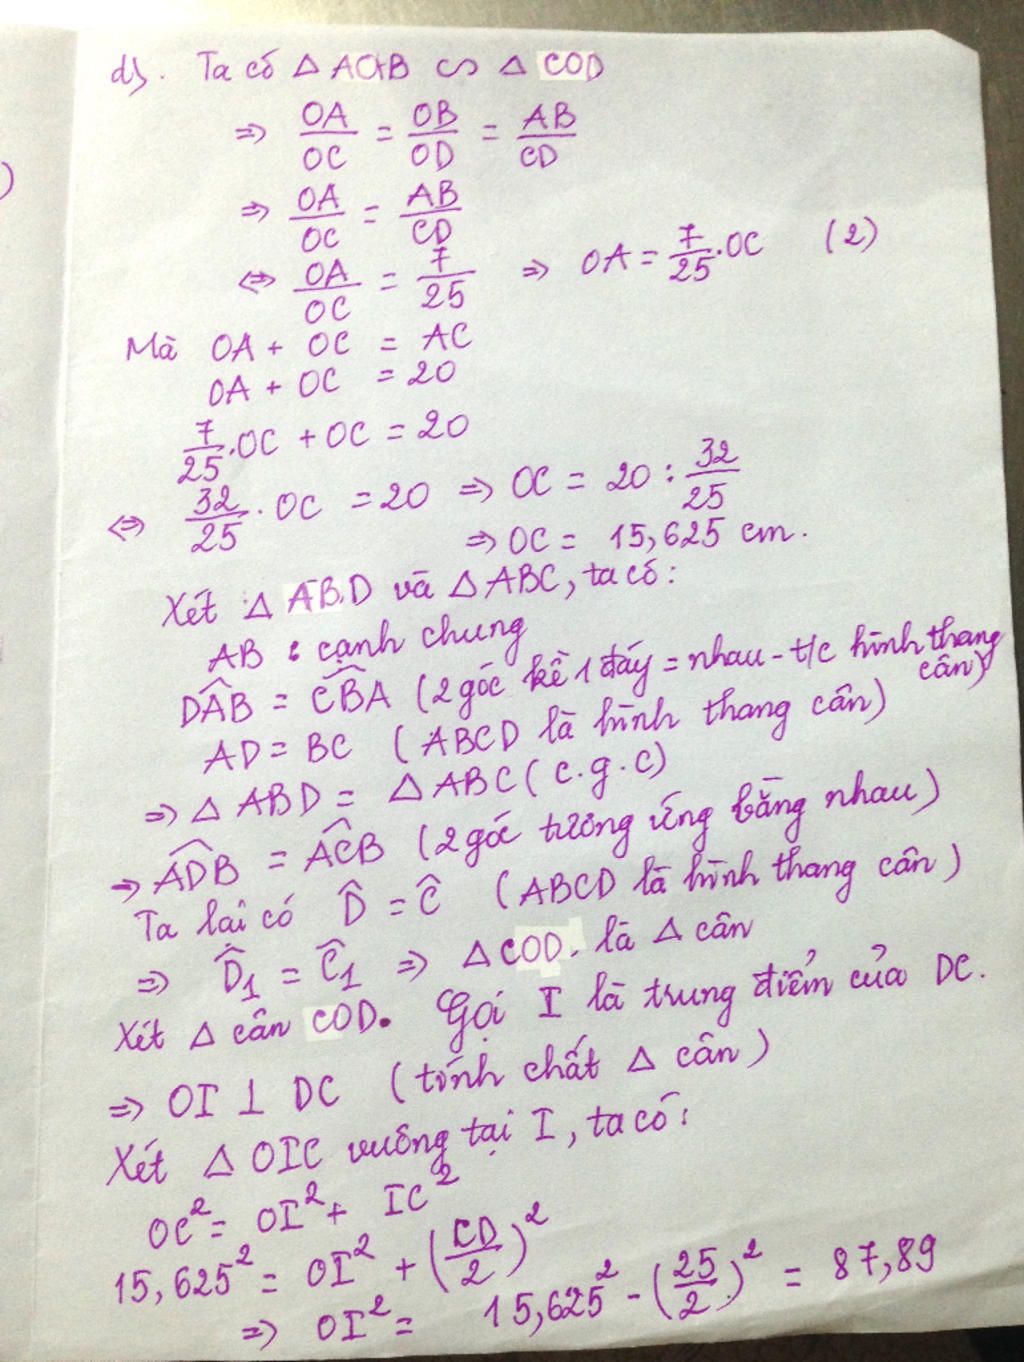 d). Ta có △ AOB ∽ △ COD
=> OA/OC = OB/OD = AB/CD
=> OA/OC = AB/CD
<=> OA/OC = 7/25 => OA = 7/25 . OC (2)
Mà OA + OC = AC
OA + OC = 20
7/25 . OC + OC = 20
<=> 32/25 . OC = 20 => OC = 20 : 32/25
=> OC = 15,625 cm.
Xét △ ABD và △ ABC, ta có:
AB : cạnh chung
DÂB = CB̂A (2 góc kề 1 đáy = nhau - t/c hình thang cân)
AD = BC (ABCD là hình thang cân)
=> △ ABD = △ ABC (c.g.c)
=> AD̂B = AĈB (2 góc tương ứng bằng nhau)
Ta lại có D̂ = Ĉ (ABCD là hình thang cân)
=> D̂₁ = Ĉ₁ => △ COD. là △ cân
Xét △ cân COD. Gọi I là trung điểm của DC.
=> OI ⊥ DC (tính chất △ cân)
Xét △ OIC vuông tại I, ta có:
OC² = OI² + IC²
15,625² = OI² + (CD/2)²
=> OI² = 15,625² - (25/2)² = 87,89